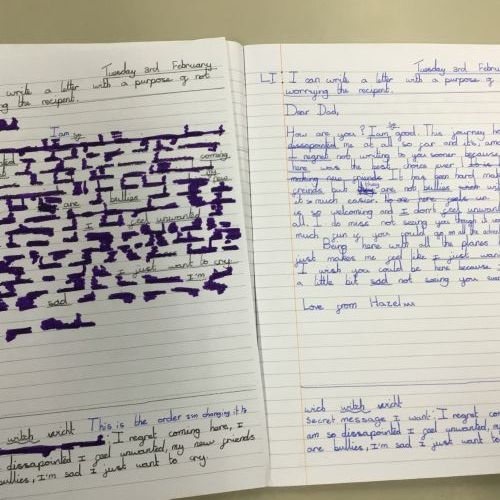 Tuesday 3rd February
write a letter with a purpose of not
ing the recipent.
I am so
coming
are bullies
I feel unwanted
I just want to cry
I'm
sad
witch wicht This is the order I'm changing it to
I regret coming here, I
dissapointed I feel unwanted, my new friends
bullies, I'm sad I just want to cry.
Tuesday 3rd Febru
LI: I can write a letter with a purpose of
worrying the recipent.
Dear Dad,
How are you? I am so good. This journey h
dissapointed me at all so far and its, ama
I regret not writing to you sooner because
here was the best choice ever! It is
making new friends It has been hard mak
friends but they are not bullies
it's much easier. here feels un
is so welcoming and I don't feel unwan
all. I do miss not seeing you though
much fun if you could go on all the
Being here with all the planes
just makes me feel like I just wan
I wish you could be here because
a little bit sad not seeing you
Love from Hazel xx
wich witch wicht
Secret message I want: I regret co
am so dissapointed I feel unwanted, my
are bullies, I'm sad I just want to